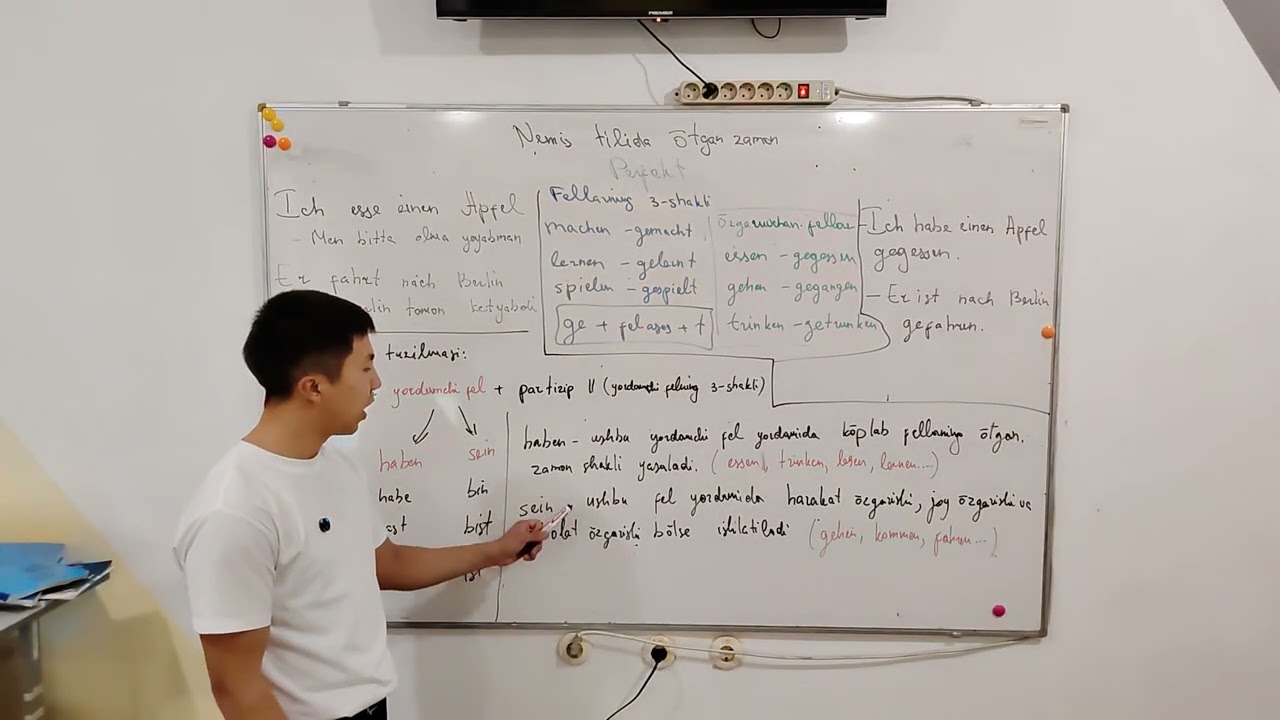 PREMIER
Nemis tilida ōtgan zamon
Perfekt
Ich esse einen Apfel
- Men bitta olma yeyabman
Er fahrt nach Berlin
lin tomon ketyabdi
Fellarning 3-shakli
machen - gemacht
lernen - gelernt
spielen - gespielt
ge + fel asos + t
ōzgaruvchan fellar
essen - gegessen
gehen - gegangen
trinken - getrunken
- Ich habe einen Apfel
gegessen.
- Er ist nach Berlin
gefahren.
tuzilmasi:
yordamchi fel + partizip II (yordamchi felning 3-shakli)
haben sein
habe bin
st bist
ist
haben - ushbu yordamchi fel yordamida kōplab fellarning ōtgan
zamon shakli yasaladi. (essen, trinken, lesen, lernen...)
sein - ushbu fel yordamida harakat ōzgarishi, joy ōzgarishi va
olat ōzgarishi bōlsa ishlatiladi (gehen, kommen, fahren...)